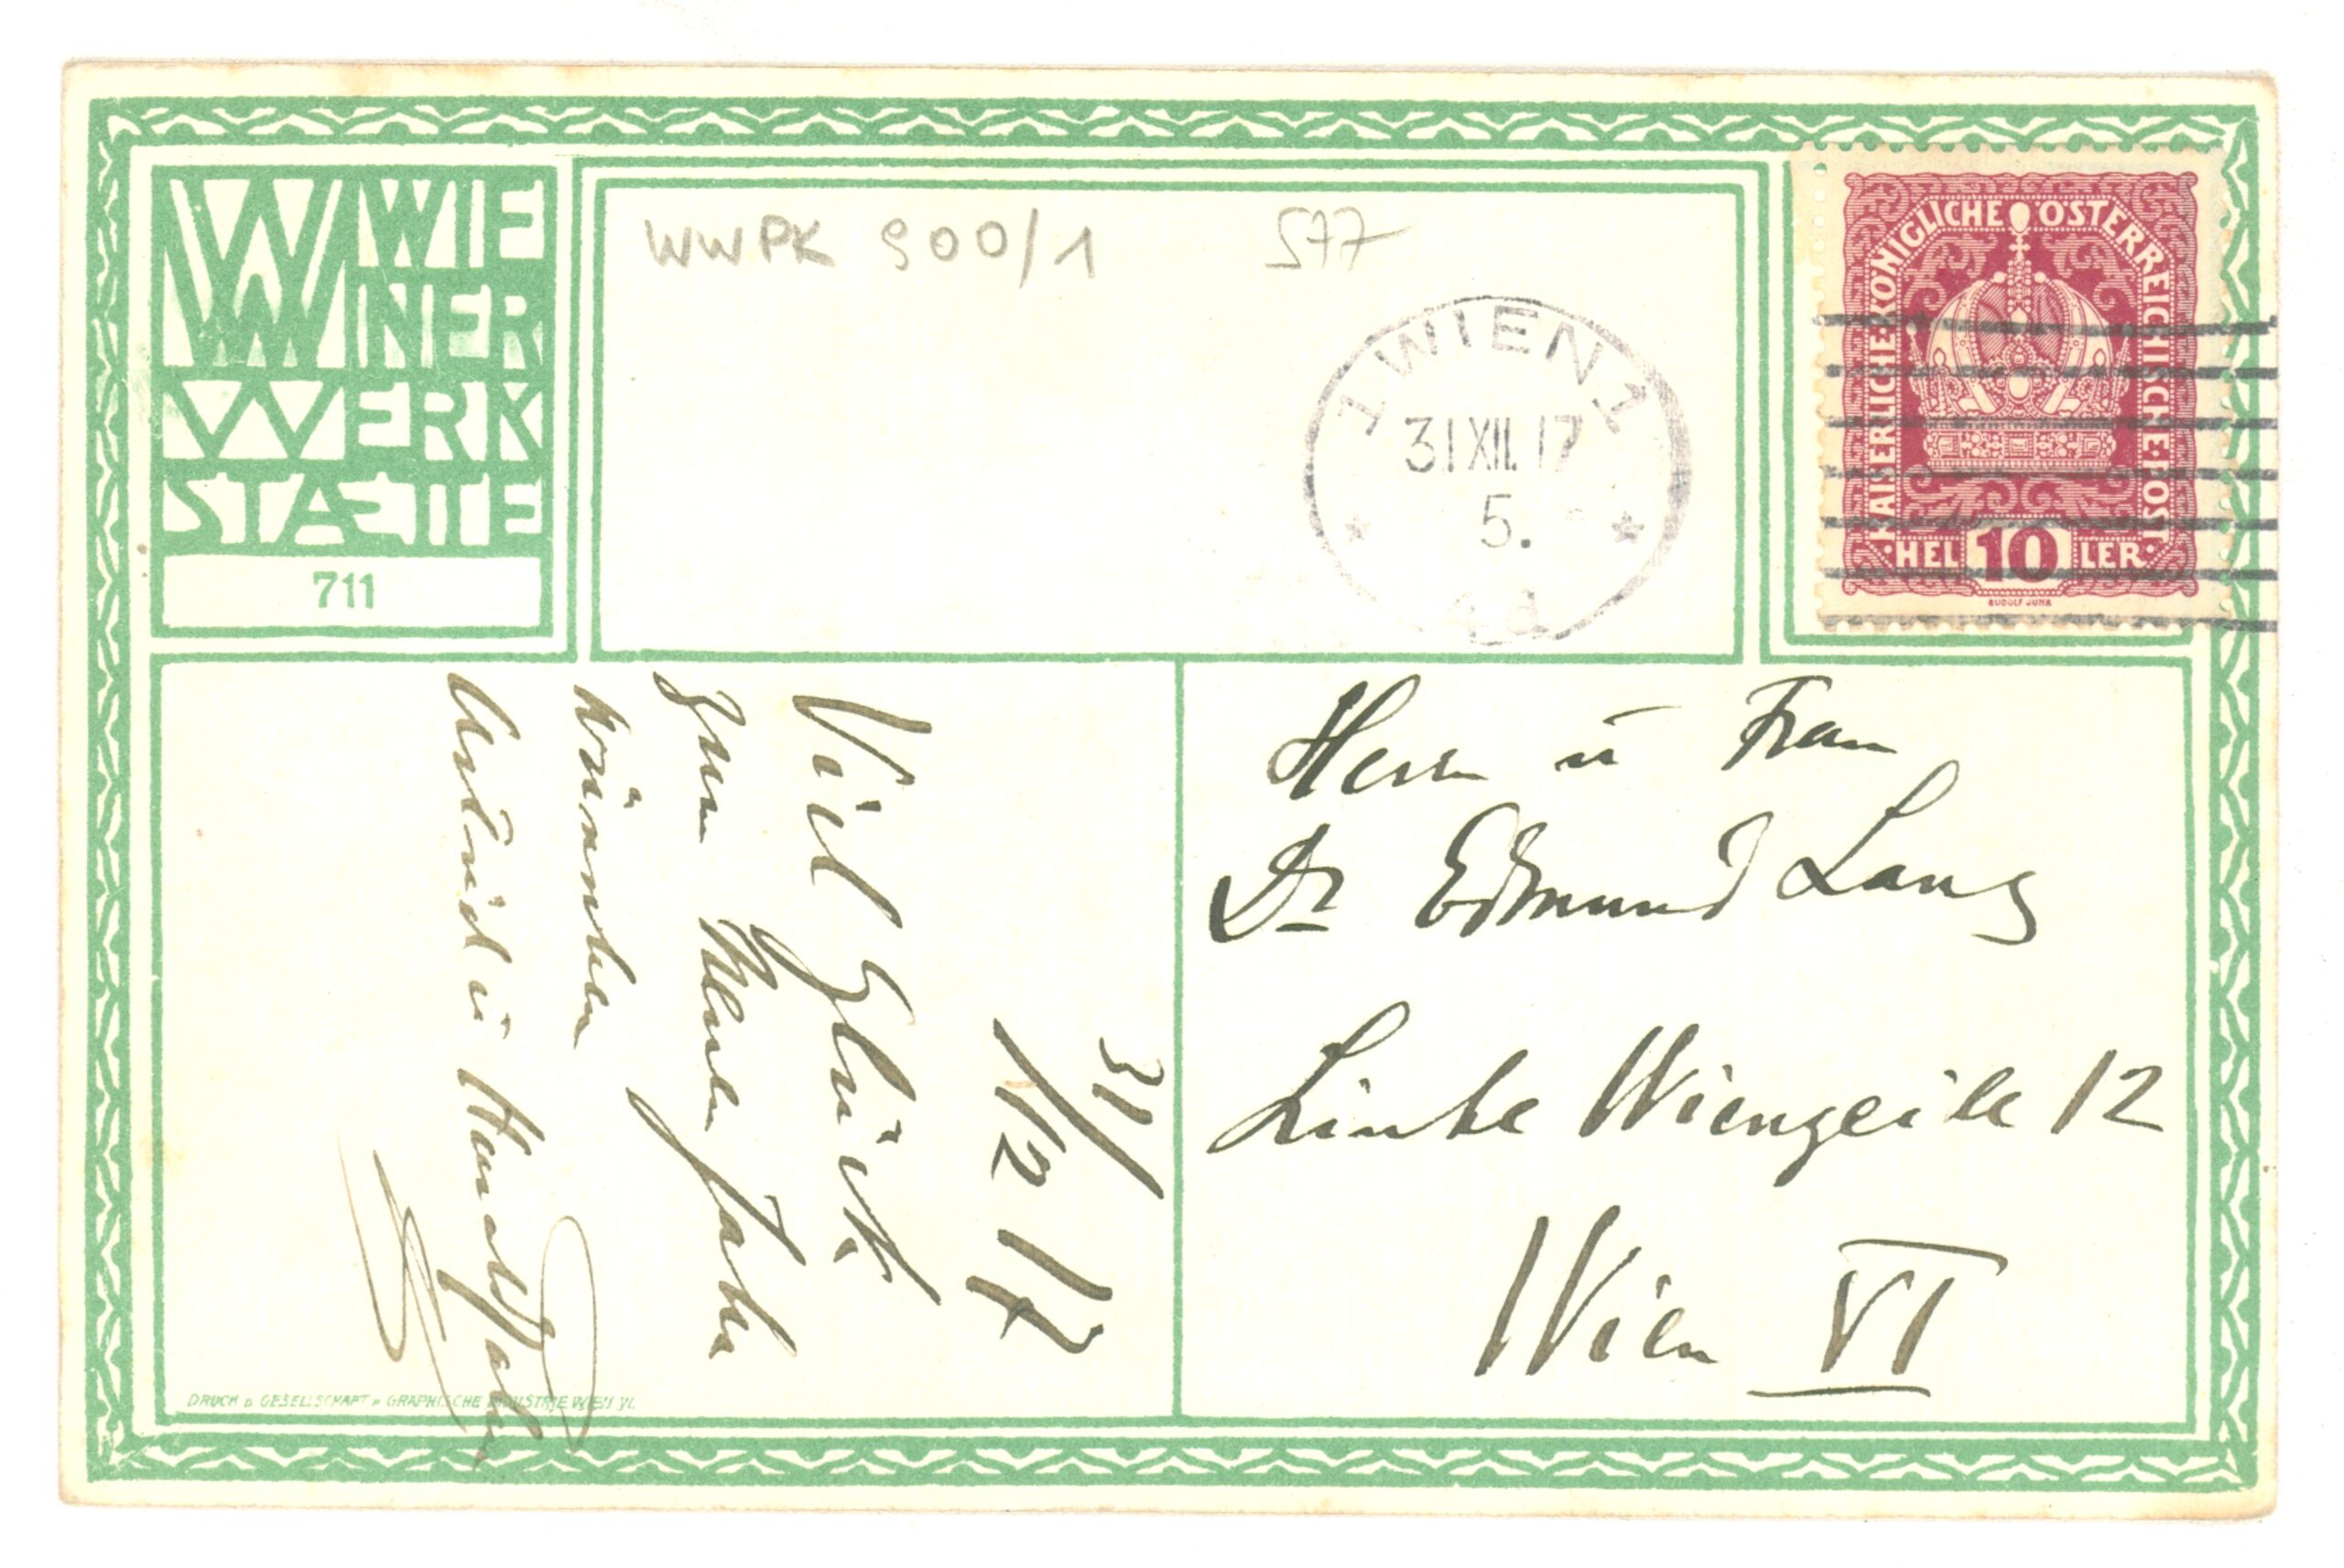 WIE
NER
WERK
STÆTTE
711
WWPK 900/1 577
1 WIEN 1
31 XII. 17
5.
KAISERLICHE·KÖNIGLICHE ÖSTERREICHISCHE·POST·
·HEL 10 LER·
RUDOLF JUNK
31/
/12 17
Viel Glück
zum Neuen Jahr
wünschen
DRUCK D GESELLSCHAFT F GRAPHISCHE INDUSTRIE WIEN VI.
Herr u Frau
Dr Edmund Lang
Linke Wienzeile 12
Wien VI